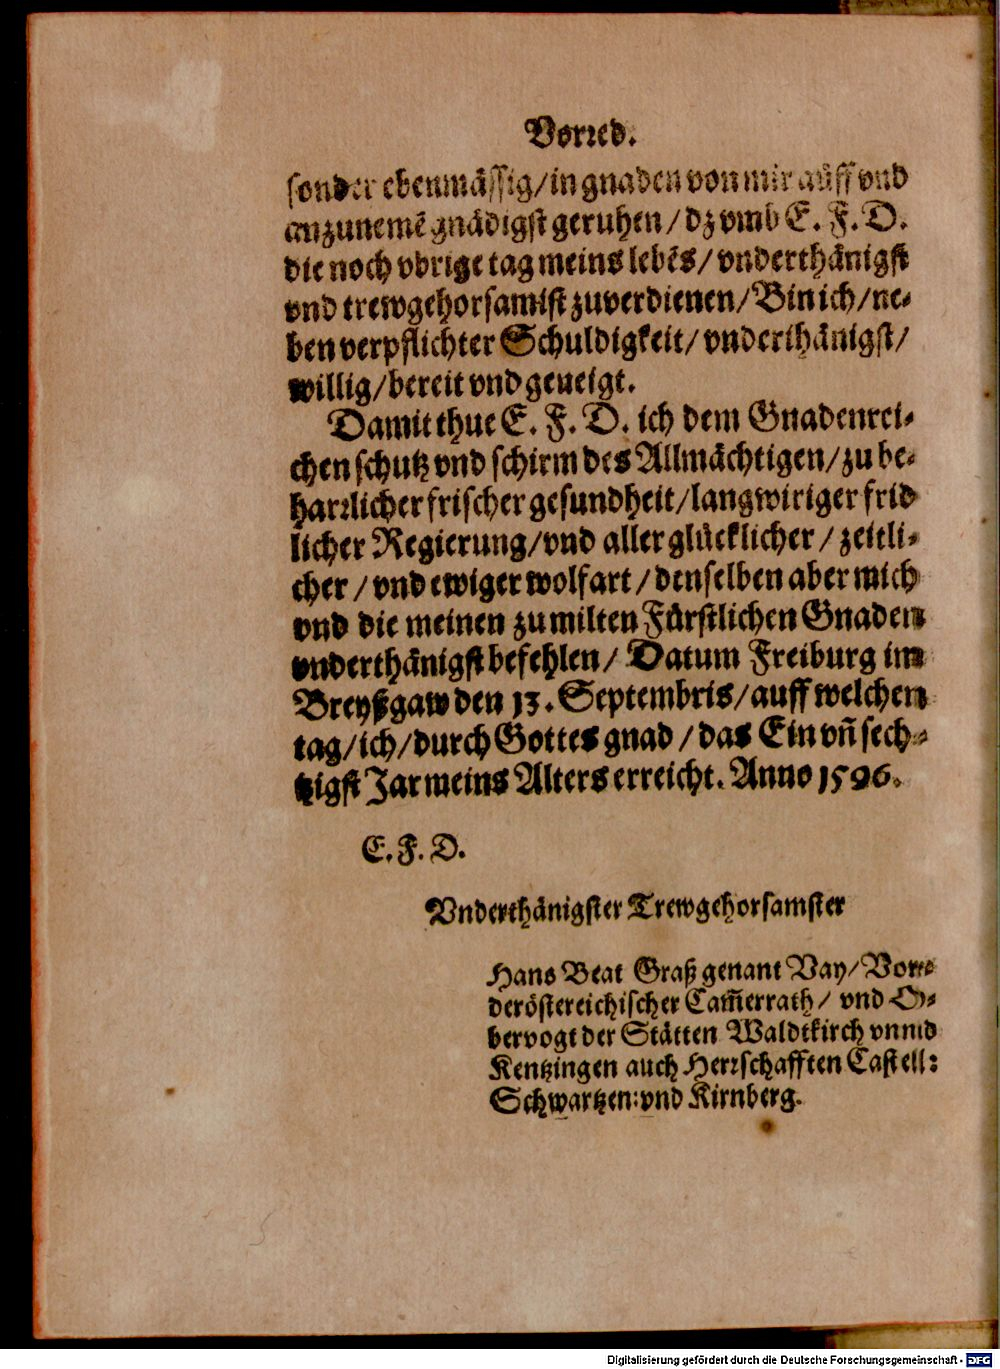 Vorred.
sonder ebenmässig/in gnaden von mir auff vnd
anzunemẽ gnädigst geruhen/dz vmb E. F. D.
die noch vbrige tag meins lebẽs/vnderthänigst
vnd trewgehorsamist zuverdienen/Bin ich/ne-
ben verpflichter Schuldigkeit/vnderthänigst/
willig/bereit vnd geneigt.
Damit thue E. F. D. ich dem Gnadenrei-
chen schutz vnd schirm des Allmächtigen/zu be-
harrlicher frischer gesundheit/langwiriger frid
licher Regierung/vnd aller glücklicher/zeitli-
cher/vnd ewiger wolfart/denselben aber mich
vnd die meinen zu milten Fürstlichen Gnaden
vnderthänigst befehlen/Datum Freiburg im
Breyßgaw den 13. Septembris/auff welchen
tag/ich/durch Gottes gnad/das Ein vñ sech-
tzigst Jar meins Alters erreicht. Anno 1596.
E. F. D.
Vnderthänigster Trewgehorsamster
Hans Beat Graß genant Vay/Vor-
deröstereichischer Cam̃errath/vnd O-
bervogt der Stätten Waldtkirch vnnd
Kentzingen auch Herrschafften Castell:
Schwartzen:vnd Kirnberg.
Digitalisierung gefördert durch die Deutsche Forschungsgemeinschaft - DFG